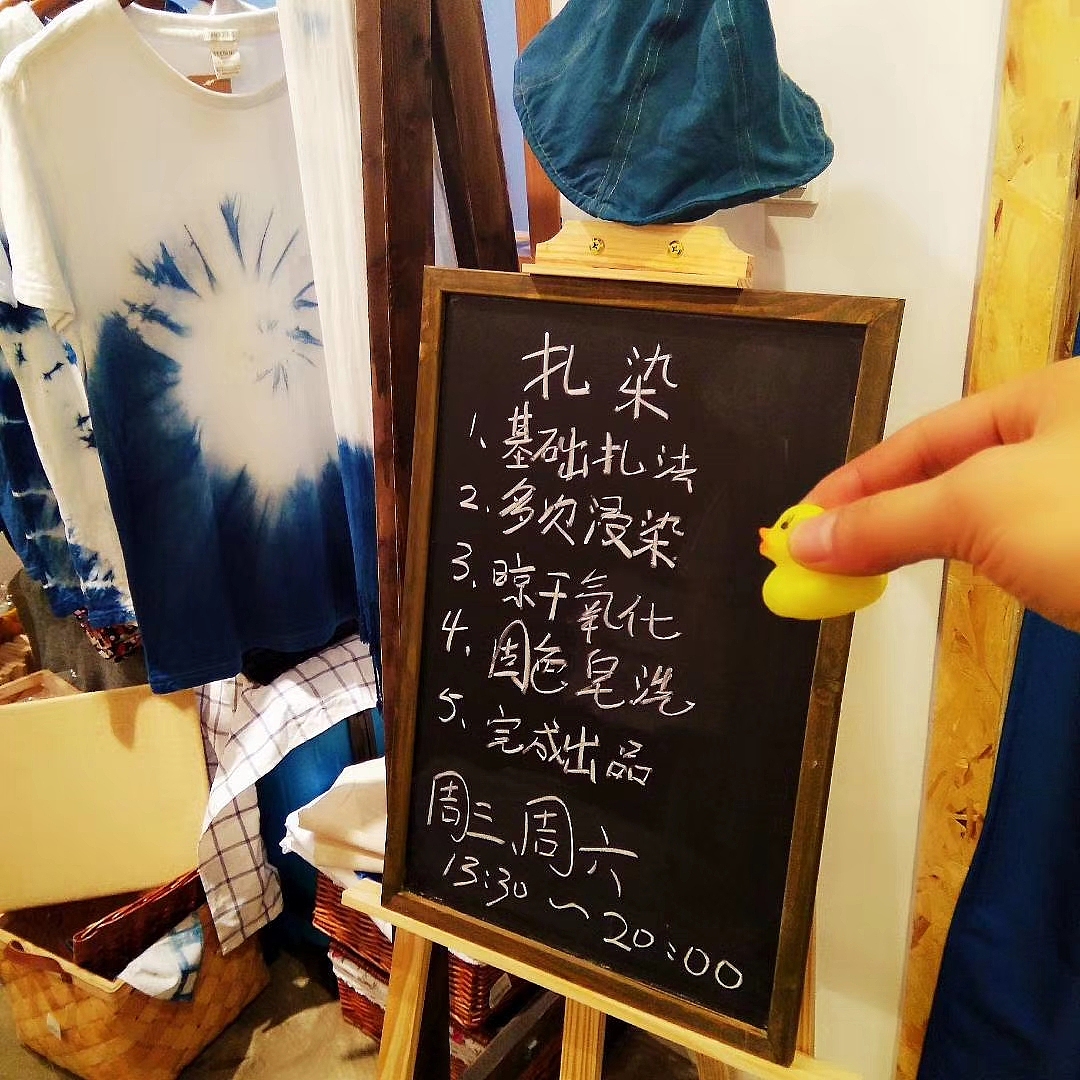 扎染
1、基础扎法
2.多次浸染
3、晾干氧化
4、固色皂洗
5、完成出品
周三、周六
13:30~20:00